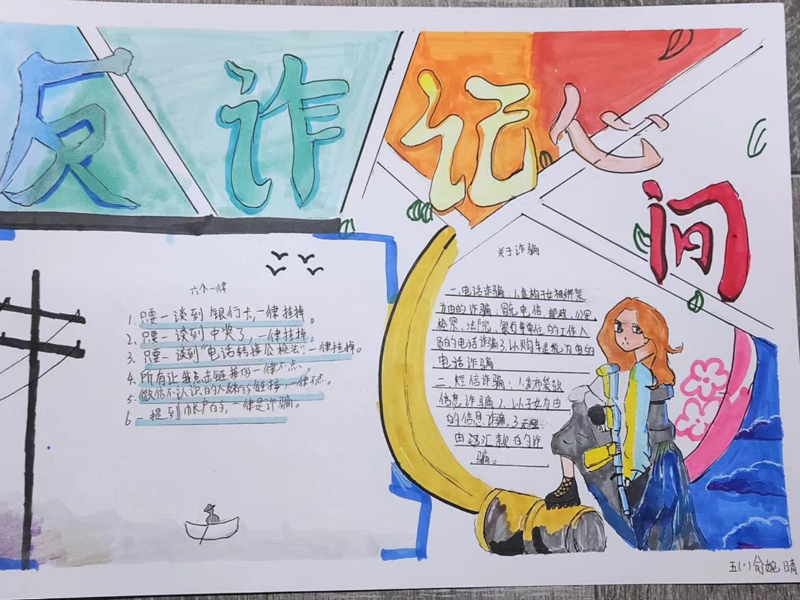 反诈记心间
六个一律
1. 只要一谈到银行卡,一律挂掉。
2. 只要一谈到中奖了,一律挂掉。
3. 只要一谈到"电话转接公检法",一律挂掉。
4. 所有让我点击链接的一律不点。
5. 微信不认识的人发的链接,一律不点
6 一提到账户的,一律是诈骗。
关于诈骗
一、电话诈骗:1.虚构子女被绑架
为由的诈骗,冒充电信 邮政、公安
检察、法院、银行等单位的工作人
的电话诈骗3以购车退税为由的
电话诈骗
二、短信诈骗:1.发布贷款
信息诈骗2、以子女为由
的信息诈骗,3
由汇款的诈
骗。
五(1)俞婉晴